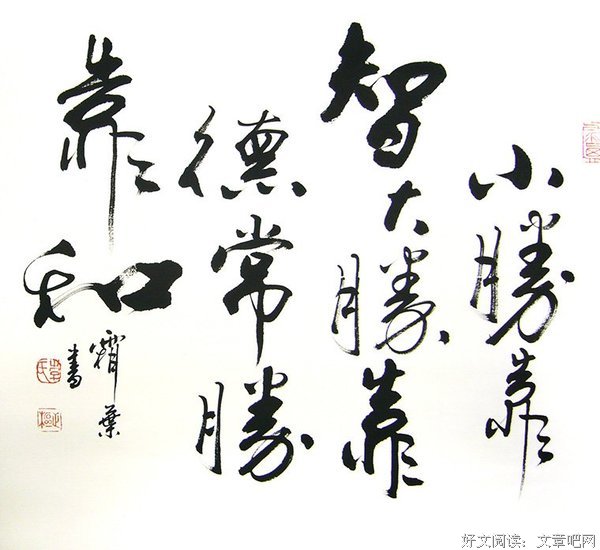 小勝靠
智大勝靠
德常勝
靠和
霜葉
書
好文阅读：文章吧网